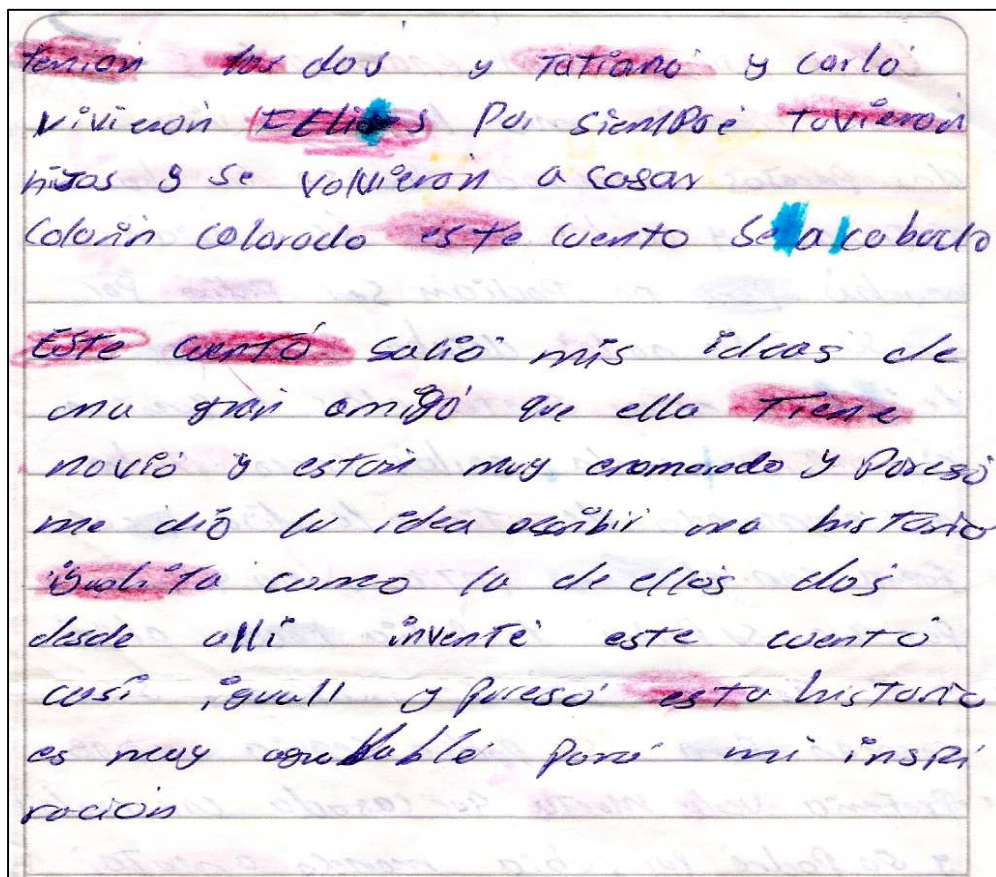 tenian los dos y Tatiana y carlo
vivieron FElices Por siemPre Tuvieron
hijos y se volvieron a casar
Colorin colorado este cuento Se a cabado
Este cuentó salió mis ideas de
una gran amigá que ella Tiene
novió y están muy enamorado y Poresó
me dió la idea escribir una historia
igualita como la de ellos dos
desde allí inventé este cuentó
casi iguall y poresó esta historia
es muy agradablé pará mi inspi
ración